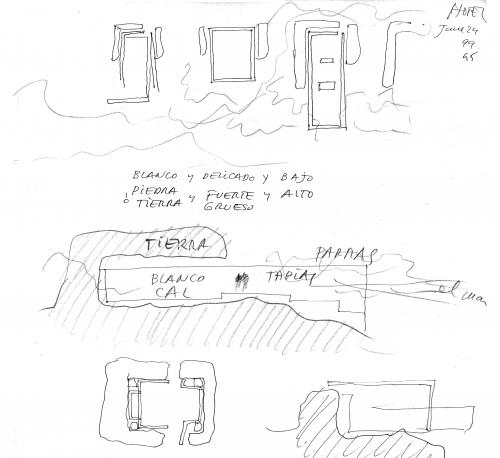 HOTEL
June 29
99
GS
BLANCO y DELICADO y BAJO
PIEDRA
ó TIERRA y FUERTE y ALTO
GRUESO
TIERRA
PARRAS
BLANCO TAPIAS
CAL
el mar